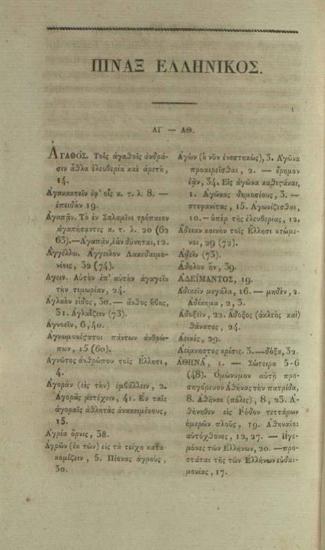 ΠΙΝΑΞ ΕΛΛΗΝΙΚΟΣ.
ΑΓ — ΑΘ.
ΑΓΑΘΟΣ. Τοῖς ἀγαθοῖς ἀνδρά-
σιν ἆθλα ἐλευθερία καὶ ἀρετὴ,
14.
Ἀγανακτεῖν ἐφ' οἷς κ. τ. λ. 8. —
ἐπειδὰν 19.
Ἀγαπᾷν. Τὸ ἐν Σαλαμῖνι τρόπαιον
ἀγαπήσαντες κ. τ. λ. 20 (62
63).— Ἀγαπᾷν, ἐὰν δύνηται, 12.
Ἀγγέλλω. Ἀγγειλον Λακεδαιμο-
νίοις, 32 (74).
Ἄγειν. Αὐτὸν ἐπ' αὐτὴν ἀγαγεῖν
τὴν τιμωρίαν, 24.
Ἀγλαὸν εἶδος, 30. — ἄνθος ἥβης,
31. Ἀγλαΐζειν (73).
Ἀγνοεῖν, 6, 40.
Ἀγνωμονέστατοι πάντων ἀνθρώ-
πων, 15 (60).
Ἀγνῶτος ἀνθρώπου τοῖς Ἕλλησι,
4.
Ἀγορὰν (εἰς τὴν) ἐμβάλλειν, 2.
Ἀγορᾶς μετέχειν, 41. Ἐν ταῖς
ἀγοραῖς ἀθλητὰς ἀνακειμένους,
15.
Ἀγρία ὄρνις, 38.
Ἀγρῶν (ἐκ τῶν) εἰς τὰ τείχη κατα-
κομίζειν, 5. Πίονας ἀγροὺς,
30.
Ἀγὼν (ὁ νῦν ἐνεστηκὼς), 3. Ἀγῶνα
προαιρεῖσθαι, 2. —
ἐᾷν, 34. Εἰς ἀγῶνα καθιέναι,
1. Ἀγῶνας δημοσίους, 3. —
στεφανίτας, 15. Ἀγωνίζεσθαι,
10. — ὑπὲρ τῆς ἐλευθερίας, 12.
κοινὸν τοῖς Ἕλλησι
29 (72).
(73).
Ἄδολον ἦν, 39.
ἈΔΕΙΜΑΝΤΟΣ, 19.
Ἀδικεῖν μεγάλα, 16. — μηδὲν, 2.
Ἀδίκημα, 2, 3.
Ἀδοξεῖν, 22. Ἄδοξος (ἀκλεὴς καὶ)
θάνατος, 24.
29.
Ἀείμνηστος κρίσις, 3. — δόξα, 32.
ΑΘΗΝΑ, 1. — Σώτειρα 5-6
(48). Ὁμώνυμον αὐτῇ προ-
σηγόρευον Ἀθήνας τὴν πατρίδα,
8. Ἀθῆναι (πόλις), 8, 23. Ἀ-
θήνηθεν εἰς Ῥόδον τεττάρων
ἡμερῶν πλοῦς, 19. Ἀθηναῖοι
αὐτόχθονες, 12, 27. — Ἡγε-
μόνες τῶν Ἑλλήνων, 20. — προ-
στάται τῆς τῶν Ἑλλήνων εὐδαι-
μονίας, 17.